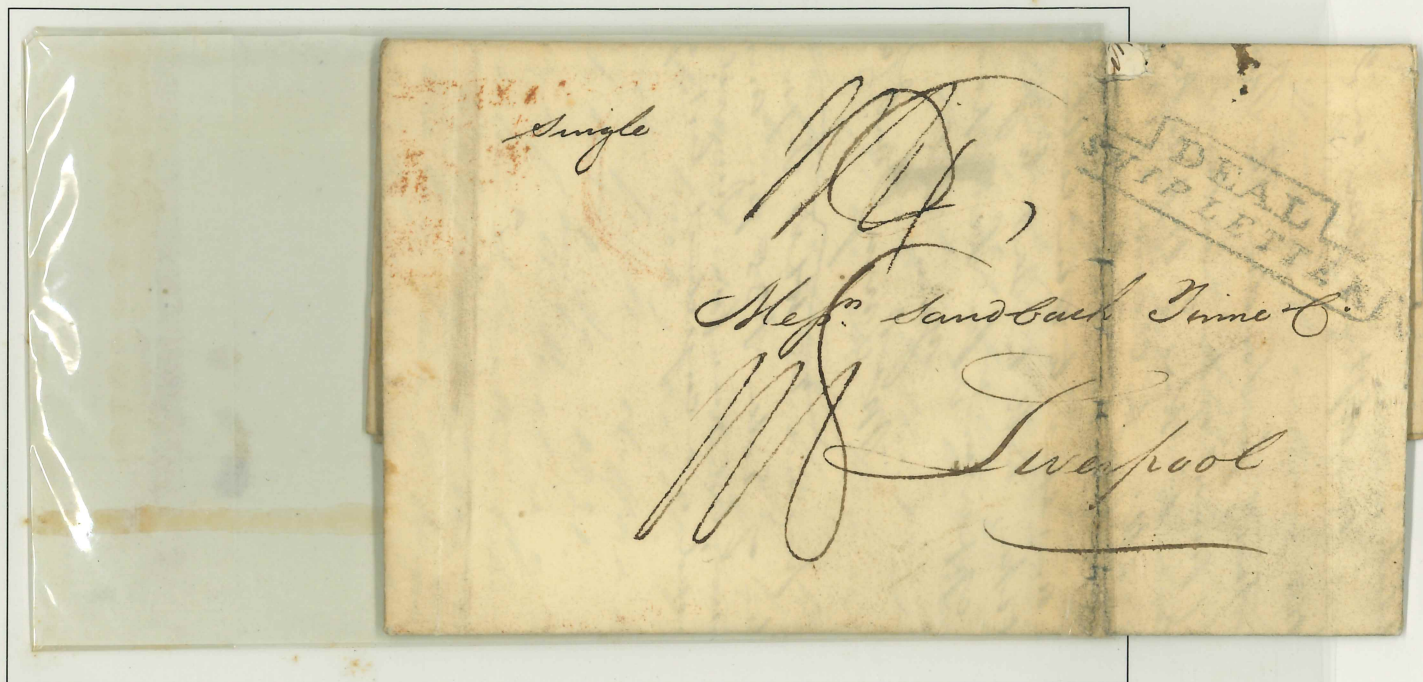 single
DEAL
SHIP LETTER
Messrs Sandbach Tinne & Co.
Liverpool